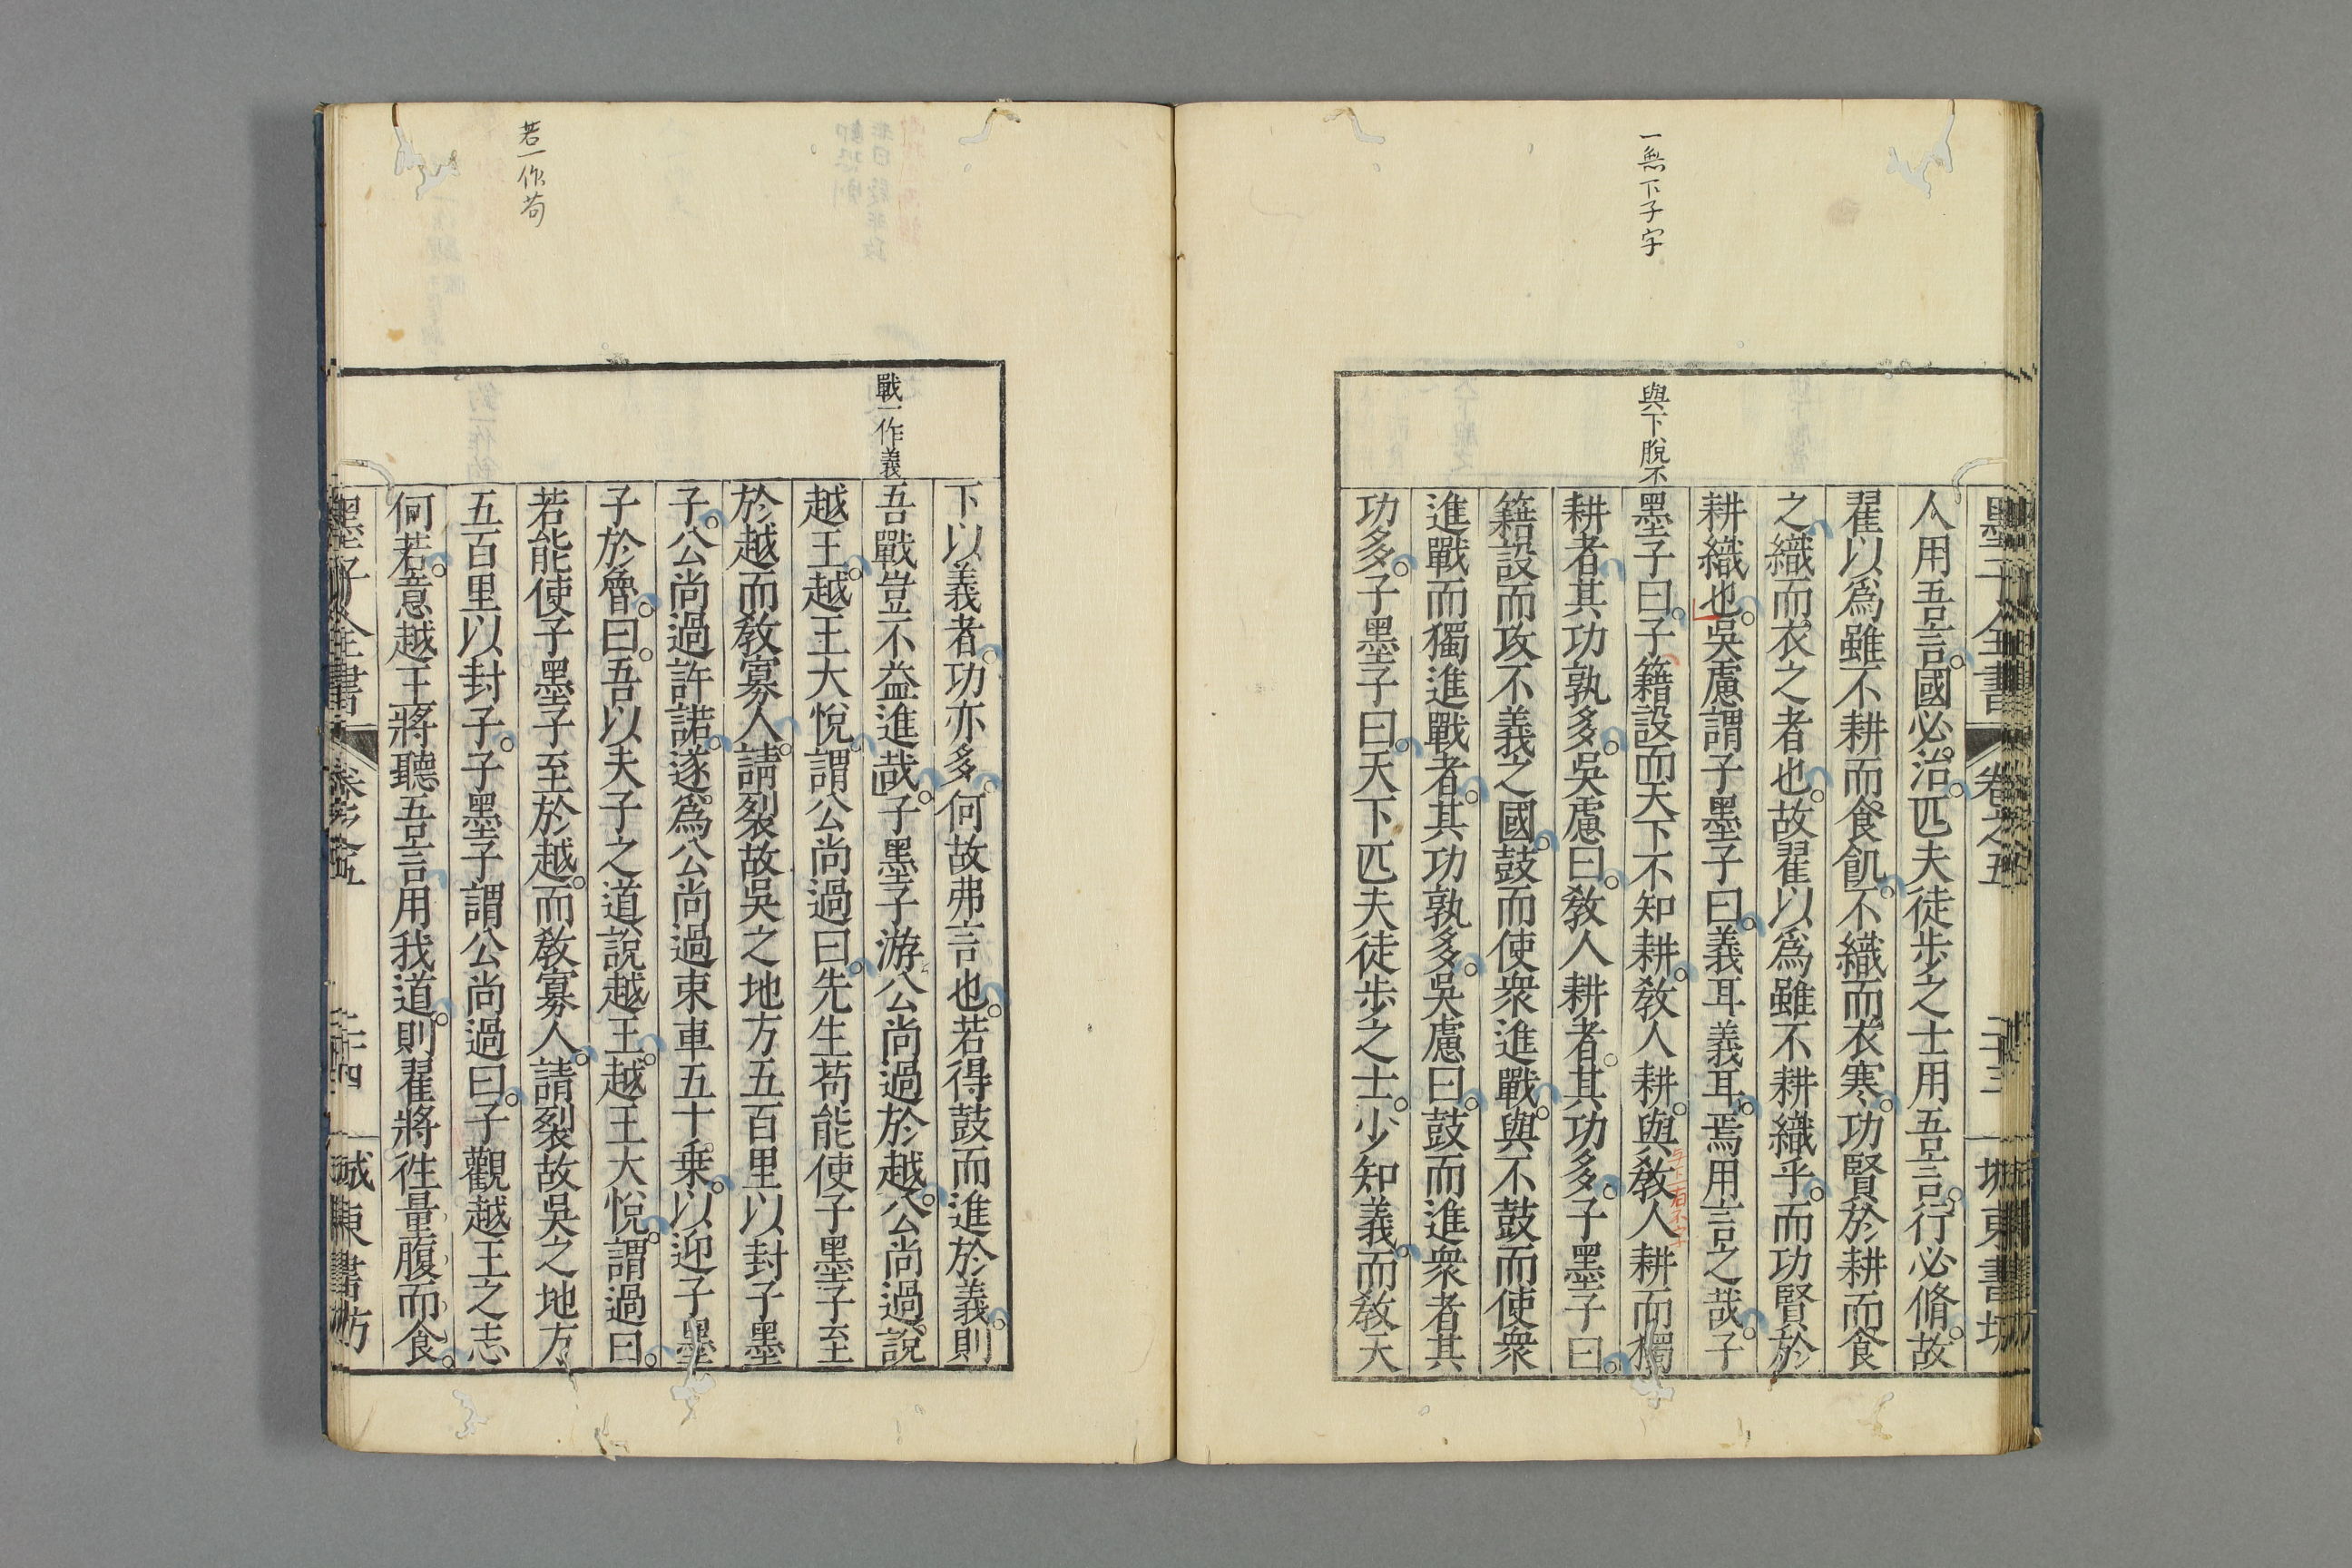 一無下子字
與下脫不
墨子全書 卷之五 二十三 城東書坊
人用吾言。國必治。匹夫徒步之士用吾言。行必脩。故
翟以爲雖不耕而食飢。不織而衣寒。功賢於耕而食
之織而衣之者也。故翟以爲雖不耕織乎。而功賢於
耕織也。吳慮謂子墨子曰。義耳義耳。焉用言之哉。子
墨子曰。子籍設而天下不知耕。敎人耕。與敎人耕而獨
耕者。其功孰多。吳慮曰。敎人耕者。其功多。子墨子曰。
籍設而攻不義之國。鼓而使衆進戰。與不鼓而使衆
進戰而獨進戰者。其功孰多。吳慮曰。鼓而進衆者其
功多。子墨子曰。天下匹夫徒步之士。少知義。而敎天
若一作苟
戰一作義
下以義者。功亦多。何故弗言也。若得鼓而進於義。則
吾戰豈不益進哉。子墨子游公尚過於越。公尚過。說
越王。越王大悅。謂公尚過曰。先生苟能使子墨子至
於越而敎寡人。請裂故吳之地方五百里以封子墨
子。公尚過許諾。遂爲公尚過束車五十乗。以迎子墨
子於魯。曰。吾以夫子之道說越王。越王大悅。謂過曰。
若能使子墨子至於越。而敎寡人。請裂故吳之地方
五百里以封子。子墨子謂公尚過曰。子觀越王之志
何若。意越王將聽吾言用我道。則翟將徃量腹而食。
墨子全書 卷之五 二十四 城東書坊